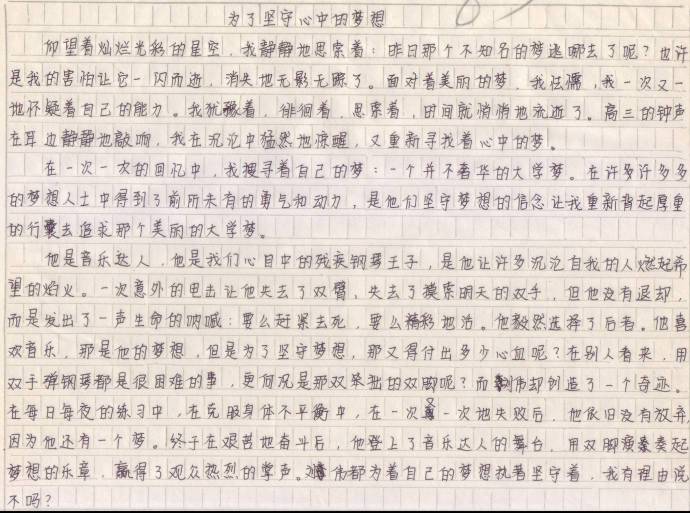 为了坚守心中的梦想
仰望着灿烂光彩的星空，我静静地思索着：昨日那个不知名的梦逃哪去了呢？也许
是我的害怕让它一闪而逝，消失地无影无踪了。面对着美丽的梦，我怯懦，我一次又一
地怀疑着自己的能力。我犹豫着，徘徊着，思索着，时间就悄悄地流逝了。高三的钟声
在耳边静静地敲响，我在沉沦中猛然地惊醒，又重新寻找着心中的梦。
在一次一次的回忆中，我搜寻着自己的梦：一个并不奢华的大学梦。在许多许多多
的梦想人士中得到了前所未有的勇气和动力，是他们坚守梦想的信念让我重新背起厚重
的行囊去追求那个美丽的大学梦。
他是音乐达人，他是我们心目中的残疾钢琴王子，是他让许多沉沦自我的人燃起希
望的焰火。一次意外的电击让他失去了双臂，失去了摸索明天的双手，但他没有退却，
而是发出了一声生命的呐喊：要么赶紧去死，要么精彩地活。他毅然选择了后者。他喜
欢音乐，那是他的梦想，但是为了坚守梦想，那又得付出多少心血呢？在别人看来，用
双手弹钢琴都是很困难的事，更何况是那双笨拙的双脚呢？而伟却创造了一个奇迹。
在每日每夜的练习中，在克服身体不平衡中，在一次又一次地失败后，他依旧没有放弃，
因为他还有一个梦。终于在艰苦地奋斗后，他登上了音乐达人的舞台，用双脚演奏起
梦想的乐章，赢得了观众热烈的掌声。伟都为着自己的梦想执著坚守着，我有理由说
不吗？